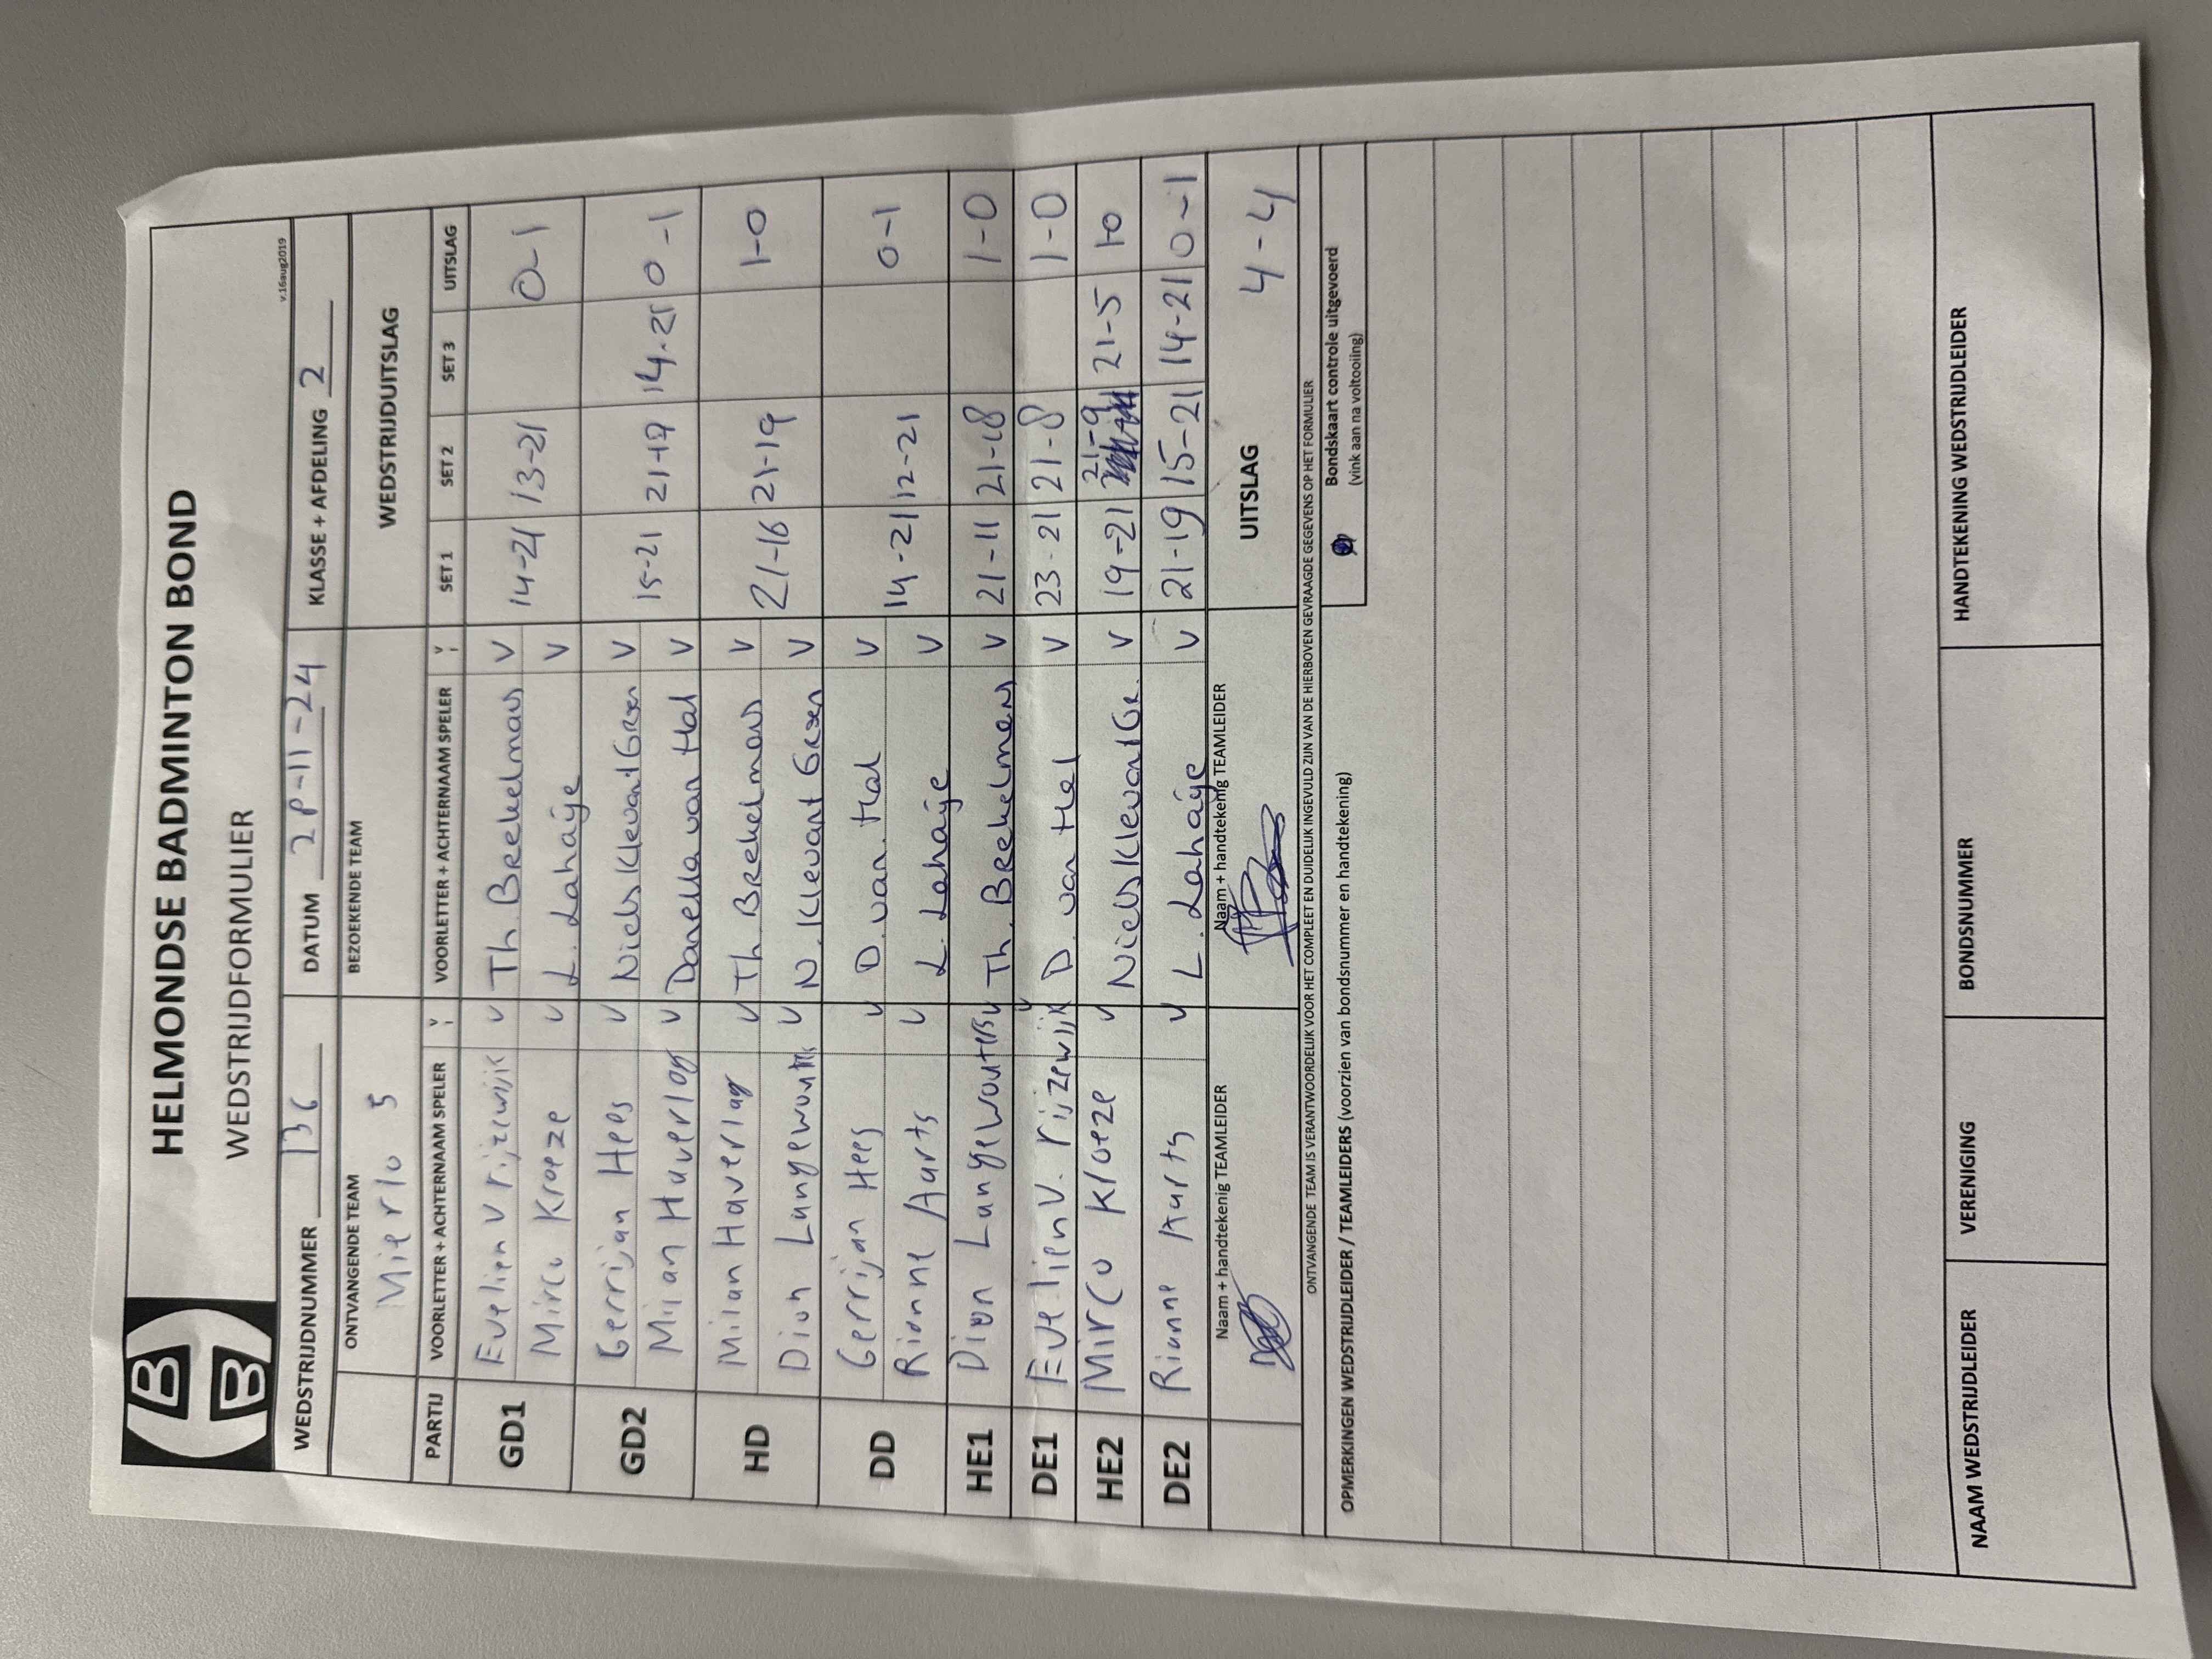 HELMONDSE BADMINTON BOND
WEDSTRIJDFORMULIER
v.16aug2019
WEDSTRIJDNUMMER 136 DATUM 28-11-24 KLASSE + AFDELING 2
ONTVANGENDE TEAM BEZOEKENDE TEAM WEDSTRIJDUITSLAG
Mierlo 5
PARTIJ VOORLETTER + ACHTERNAAM SPELER V VOORLETTER + ACHTERNAAM SPELER V SET 1 SET 2 SET 3 UITSLAG
GD1 Evelien V rijzewijk V Th. Brekelmans V 14-21 13-21 0-1
Mirco Kroeze V L. Lahaije V
GD2 Gerrijan Hees V Niels Klevant Groen V 15-21 21-19 14-21 0-1
Milan Haverlag V Danella van Hal V
HD Milan Haverlag V Th. Brekelmans V 21-16 21-19 1-0
Dion Langewouters V N. Klevant Groen V
DD Gerrijan Hees V D. van Hal V 14-21 12-21 0-1
Rianne Aarts V L. Lahaije V
HE1 Dion Langewouters V Th. Brekelmans V 21-11 21-18 1-0
DE1 Evelien V. rijzewijk V D. van Hal V 23-21 21-8 1-0
HE2 Mirco Kroeze V Niels Klevant Gr. V 19-21 21-9 21-5 1-0
DE2 Rianne Aarts V L. Lahaije V 21-19 15-21 14-21 0-1
Naam + handtekenig TEAMLEIDER Naam + handtekenig TEAMLEIDER UITSLAG 4-4
ONTVANGENDE TEAM IS VERANTWOORDELIJK VOOR HET COMPLEET EN DUIDELIJK INGEVULD ZIJN VAN DE HIERBOVEN GEVRAAGDE GEGEVENS OP HET FORMULIER
OPMERKINGEN WEDSTRIJDLEIDER / TEAMLEIDERS (voorzien van bondsnummer en handtekening)
Bondskaart controle uitgevoerd
(vink aan na voltooiing)
NAAM WEDSTRIJDLEIDER VERENIGING BONDSNUMMER HANDTEKENING WEDSTRIJDLEIDER